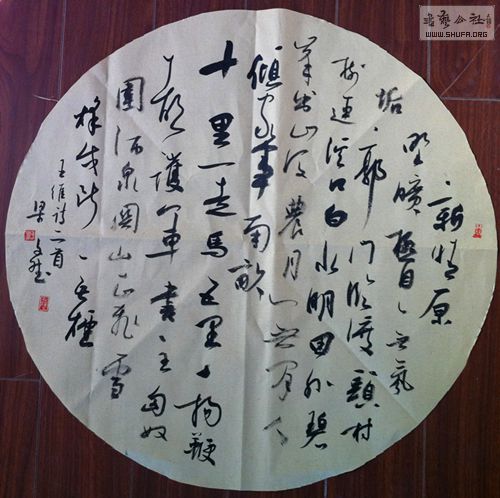 新晴原
野曠極目無氛
垢郭門臨渡頭村
樹連溪口白水明田外碧
峯出山後農月無閒人
傾家事南畝
十里一走馬五里一揚鞭
都護軍書至匈奴
圍酒泉關山正飛雪
烽戍斷無煙
王維詩二首
梁
書藝公社
WWW.SHUFA.ORG